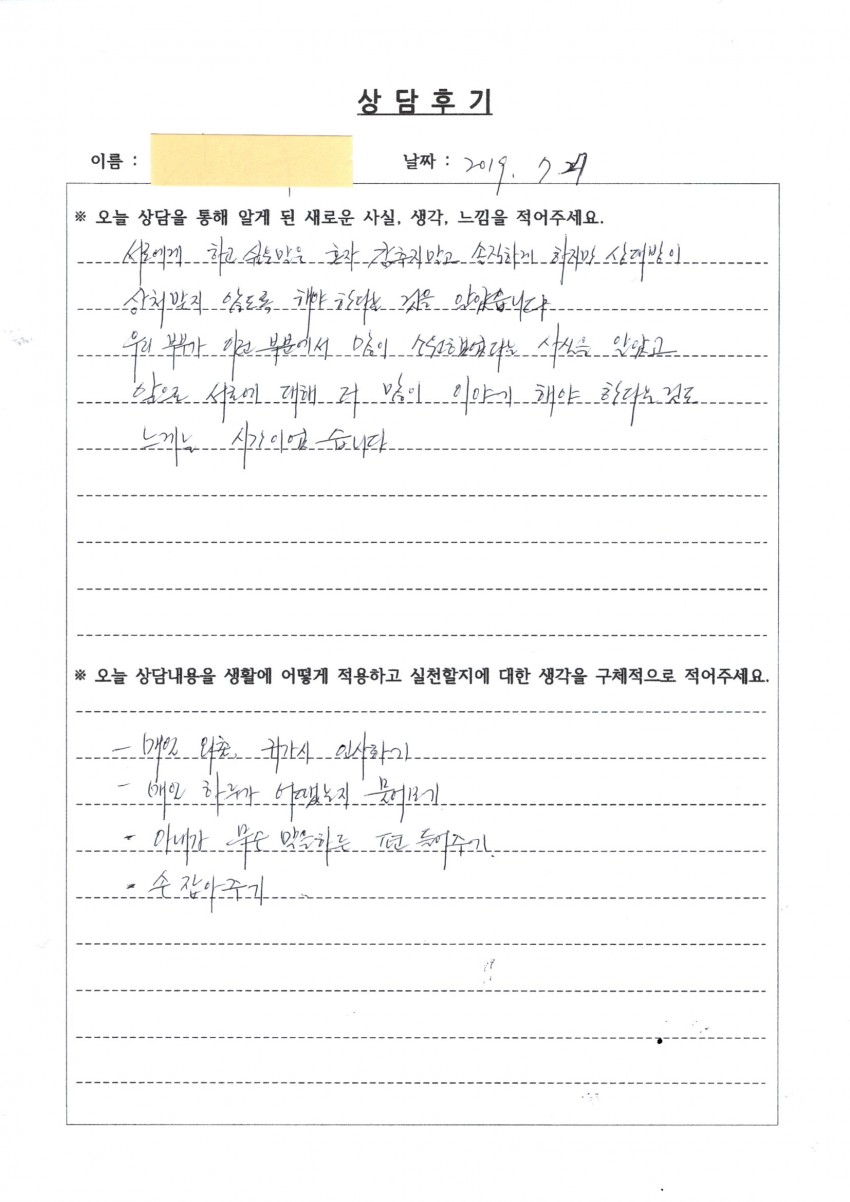 상 담 후 기
이름 : 날짜 : 2019. 7 27
※ 오늘 상담을 통해 알게 된 새로운 사실, 생각, 느낌을 적어주세요.
서로에게 하고 싶은말은 혼자 감추지말고 솔직하게 하지만 상대방이
상처받지 않도록 해야 한다는 것을 알았습니다
우리 부부가 이런 부분에서 많이 소원했었다는 사실을 알았고
앞으로 서로에 대해 더 많이 이야기 해야 한다는것도
느끼는 시간이었습니다
※ 오늘 상담내용을 생활에 어떻게 적용하고 실천할지에 대한 생각을 구체적으로 적어주세요.
- 매일 외출, 귀가시 인사하기
- 매일 하루가 어땠는지 물어보기
- 아내가 무슨 말을하든 편 들어주기.
- 손 잡아주기